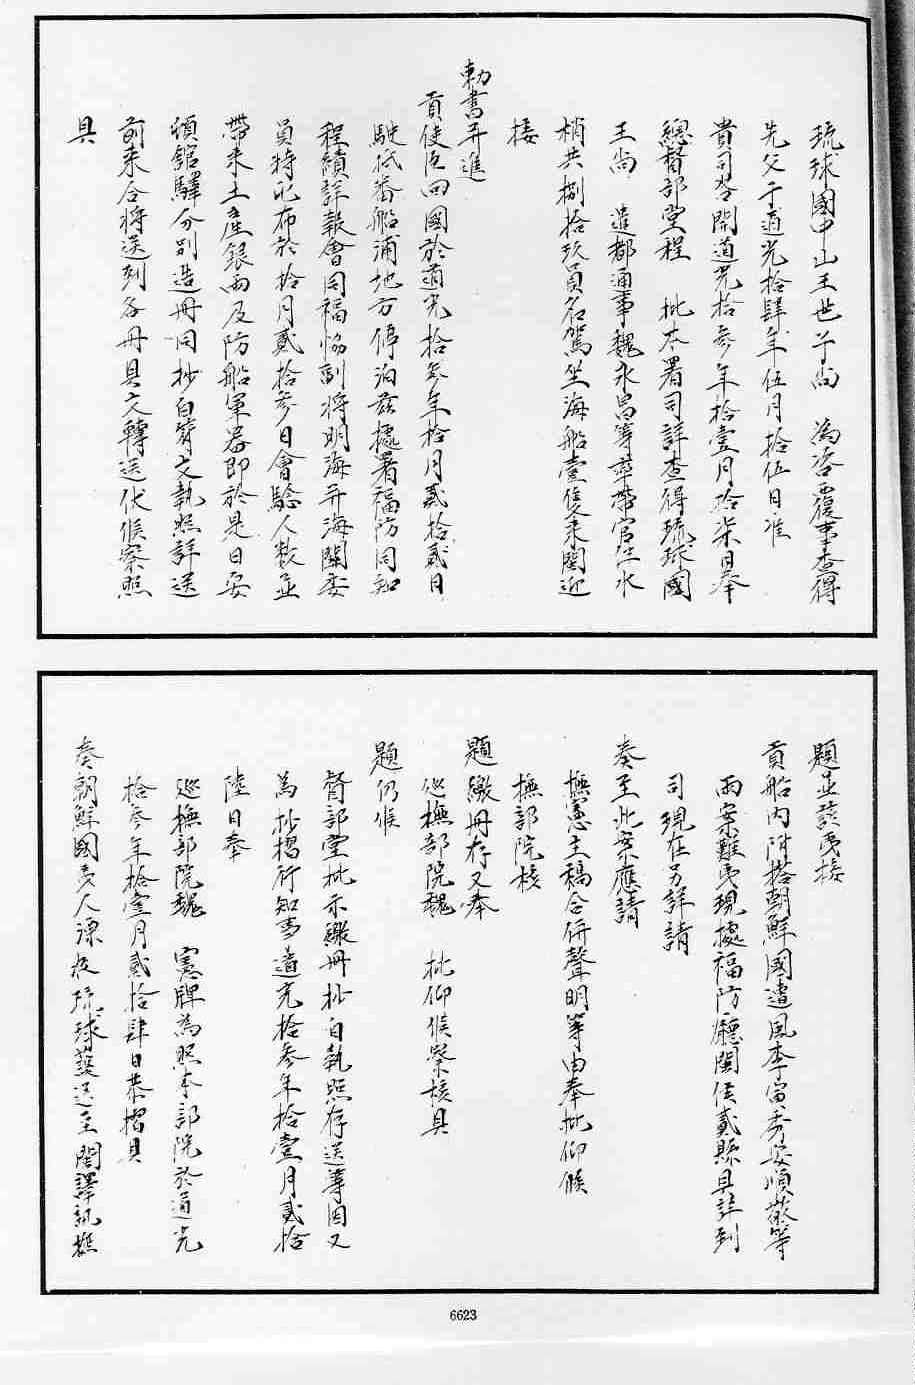 琉球國中山王世子尚　為咨覆事查得
先父于道光拾肆年伍月拾伍日准
貴司咨開道光拾叁年拾壹月拾柒日奉
總督部堂程　批本署司詳查得琉球國
王尚　遣都通事魏永昌等率帶官伴水
梢共捌拾玖員名駕坐海船壹隻來閩迎
接
勅書并進
貢使臣回國於道光拾叁年拾月貳拾貳日
駛抵番船浦地方停泊茲據署福防同知
程績詳報會同福協副將明海并海關委
員特記布於拾月貳拾叁日會驗人數並
帶來土產銀兩及防船軍器即於是日安
頓館驛分別造冊同抄白符文執照詳送
前來合將送到各冊具文轉送伏候察照
具
題並該夷接
貢船內附搭朝鮮國遭風李富秀安順敬等
兩案難夷現據福防廳閩侯貳縣具詳到
司現在另詳請
奏至此案應請
撫憲主稿合併聲明等由奉批仰候
撫部院核
題繳冊存又奉
巡撫部院魏　批仰候察核具
題仍候
督部堂批示繳冊抄白執照存送等因又
為抄摺行知事道光拾叁年拾壹月貳拾
陸日奉
巡撫部院魏　憲牌為照本部院於道光
拾叁年拾壹月貳拾肆日恭摺具
奏朝鮮國夷人漂收琉球護送至閩譯訊撫
6623